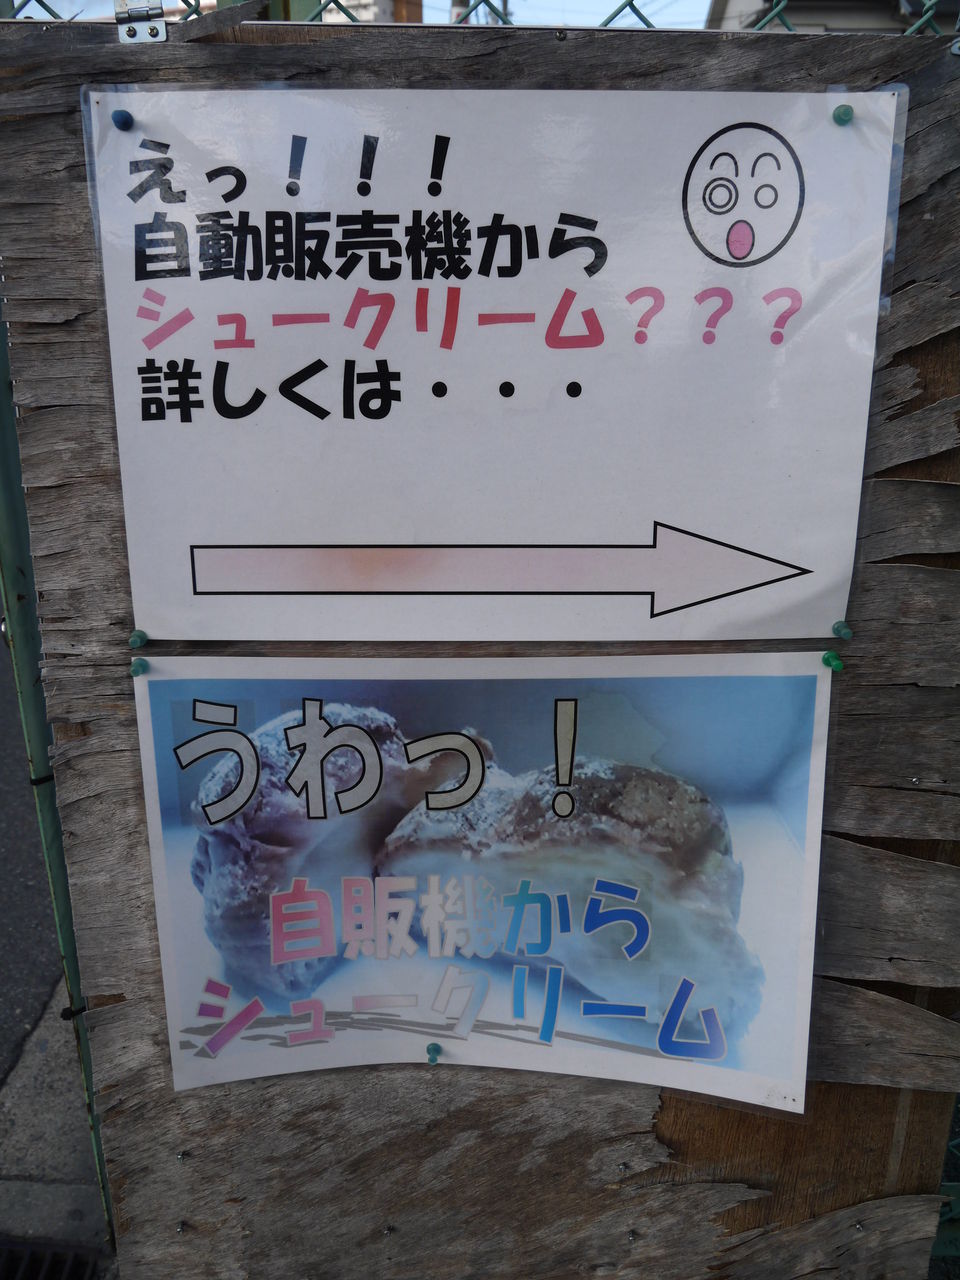 えっ！！！
自動販売機から
シュークリーム？？？
詳しくは・・・
うわっ！
自販機から
シュークリーム